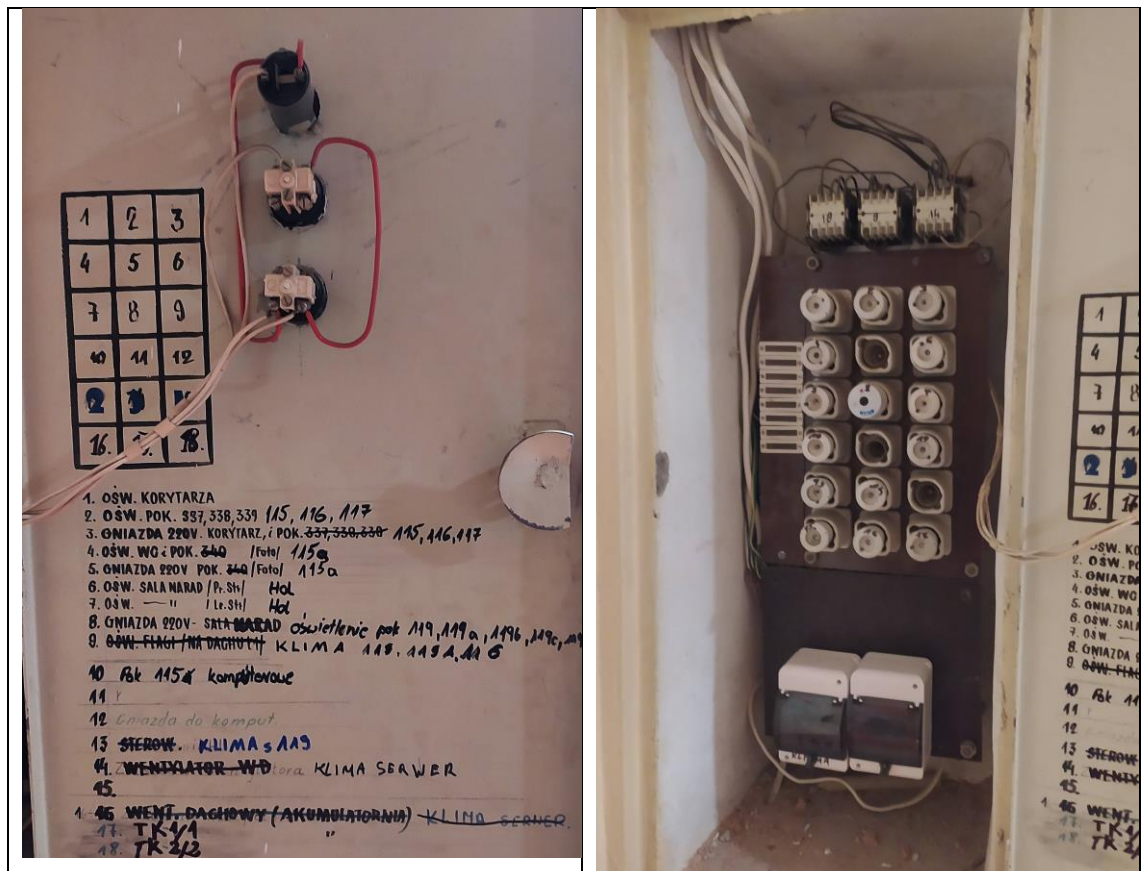 1 2 3
4 5 6
7 8 9
10 11 12
16. 17. 18.
1. OŚW. KORYTARZA
2. OŚW. POK. 337,338,339 115, 116, 117
3. GNIAZDA 220V. KORYTARZ, i POK. 337,338,339 115,116,117
4. OŚW. WC i POK. 340 /Foto/ 115a
5. GNIAZDA 220V POK. 340 /Foto/ 115a
6. OŚW. SALA NARAD /Pr.Str/ Hol
7. OŚW. —— " /Le.Str/ Hol
8. GNIAZDA 220V- SALA NARAD oświetlenie pok 119, 119a, 119b, 119c, 119
9. OŚW. FLAGI /NA DACHU/ KLIMA 118. 119A, 116
10 Pok 115a komputerowe
11
12 Gniazda do komput
13 STEROW. KLIMA s 119
14. WENTYLATOR W-D KLIMA SERWER
15.
16 WENT. DACHOWY (AKUMULATORNIA) KLIMA SERWER.
17. TK 1/1 "
18. TK 2/2
18 8 14
KLIMA
1
4 5
7 8
10 11
16. 17
OŚW. KO
2. OŚW. PO
3. GNIAZDA
4. OŚW. WC
5. GNIAZDA
6. OŚW. SALA
7. OŚW.
8. GNIAZDA
9. OŚW. FLAG
10 Pok 11
11
12
13 STEROW
14. WENTY
15.
16 WENT.
17. TK 1/
18. TK 2/